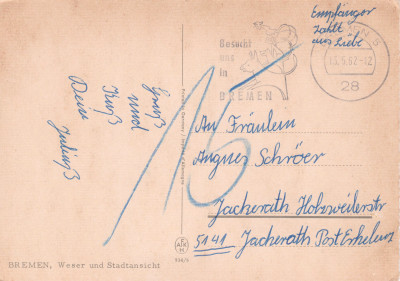 Empfänger
zahlt
aus Liebe
Besucht
uns
in
BREMEN
BREMEN 5
13.5.62-12
28
Gruß
und
Kuß
Deine
An Fräulein
Agnes Schröer
Jackerath Holzweilerstr
5141 Jackerath Post Erkelenz
15
BREMEN, Weser und Stadtansicht